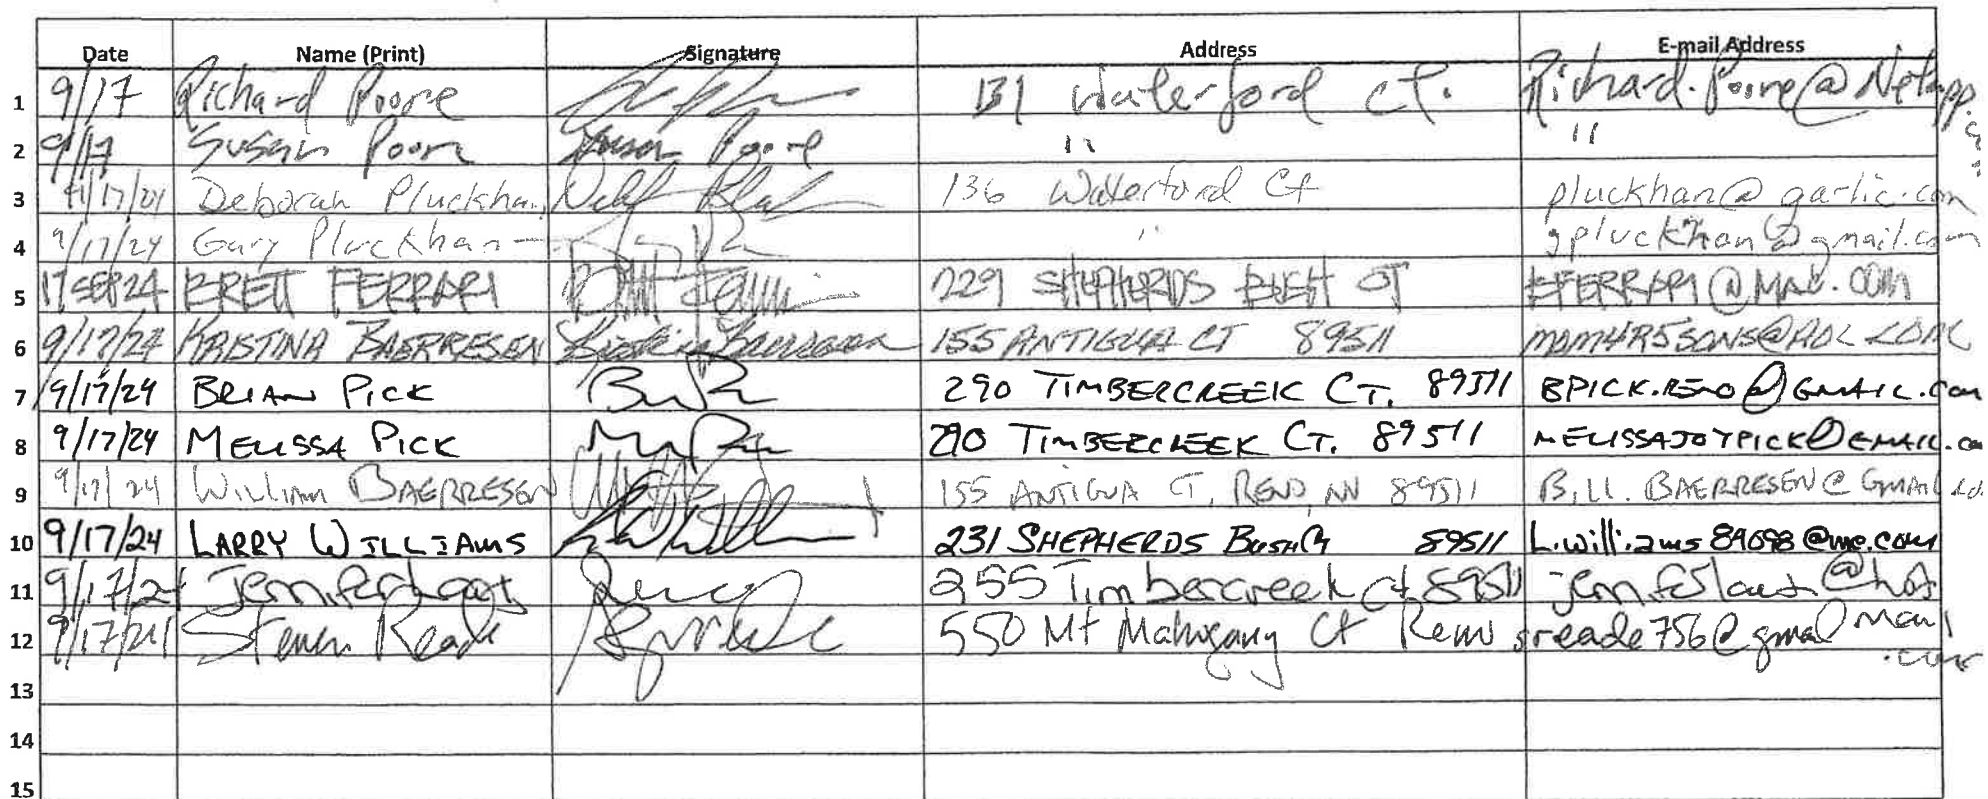 Date Name (Print) Signature Address E-mail Address
1 9/17 Richard Poore 131 Waterford Ct. Richard.Poore@Netapp.
2 9/17 Susan Poore Susan Poore " "
3 9/17/24 Deborah Pluckhan 136 Waterford Ct pluckhan@garlic.com
4 9/17/24 Gary Pluckhan " gpluckhan@gmail.com
5 17 SEP 24 BRETT FERRARI 229 SHEPHERDS BUSH CT BFERRARI@MAC.COM
6 9/17/24 KRISTINA BAERRESEN 155 ANTIGUA CT 89511 MOM4R5SONS@AOL.COM
7 9/17/24 BRIAN PICK 290 TIMBERCREEK CT. 89511 BPICK.RENO@GMAIL.COM
8 9/17/24 MELISSA PICK 290 TIMBERCREEK CT. 89511 MELISSAJOYPICK@GMAIL.CO
9 9/17/24 WILLIAM BAERRESEN 155 ANTIGUA CT, RENO NV 89511 BILL.BAERRESEN@GMAIL.CO
10 9/17/24 LARRY WILLIAMS 231 SHEPHERDS BUSH 89511 L.williams89098@me.com
11 9/17/24 Jennifer 255 Timbercreek Ct. 89511
12 9/17/24 Steven Reade 550 Mt Mahogany Ct Reno sreade756@gmail
.com
13
14
15